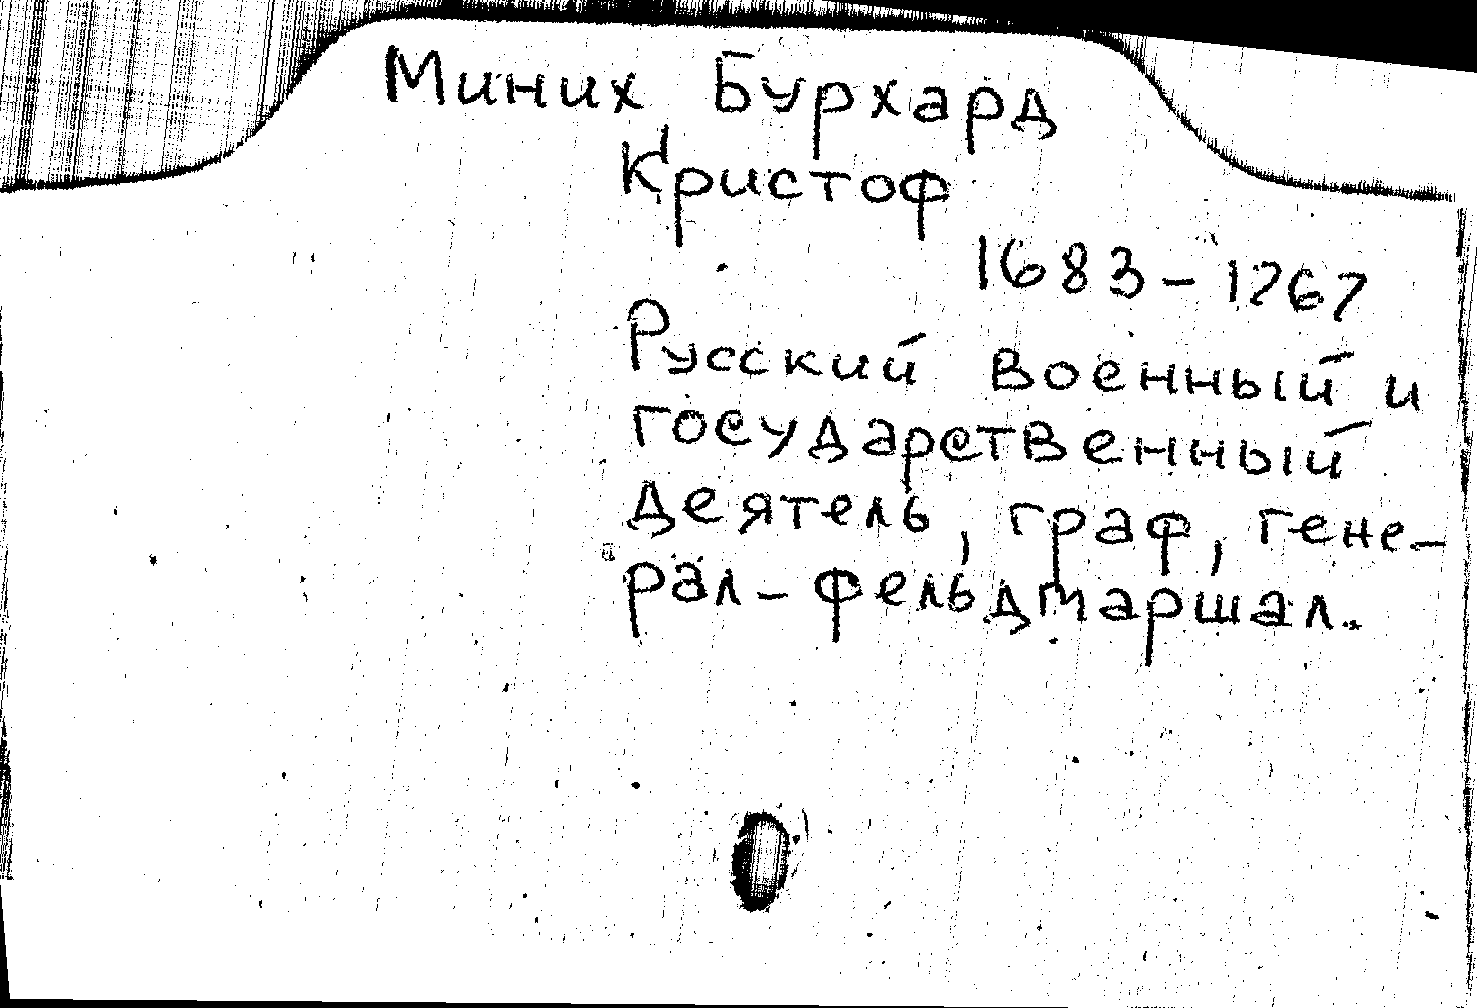 Миних, Бурхард
Кристоф
1683-1767
Русский военный и
государственный
деятель, граф, гене-
рал-фельдмаршал.